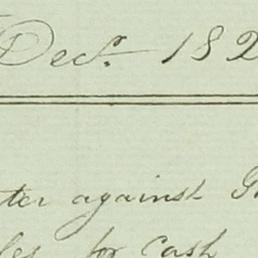 Decr. 182
ter against
for Cash